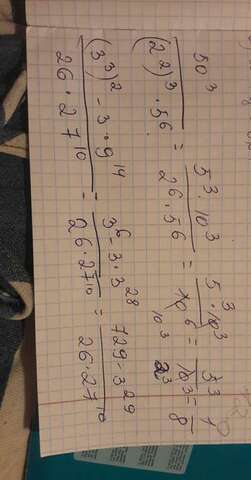 50³ / (2²)³ · 5⁶ = 5³ · 10³ / 2⁶ · 5⁶ = 5³ · 10³ / 10⁶ 10³ = 5³ / 10³ 2³ = 1 / 8
(3³)² - 3 · 9¹⁴ / 26 · 27¹⁰ = 3⁶ - 3 · 3²⁸ / 26 · 27¹⁰ = 729 - 3²⁹ / 26 · 27¹⁰